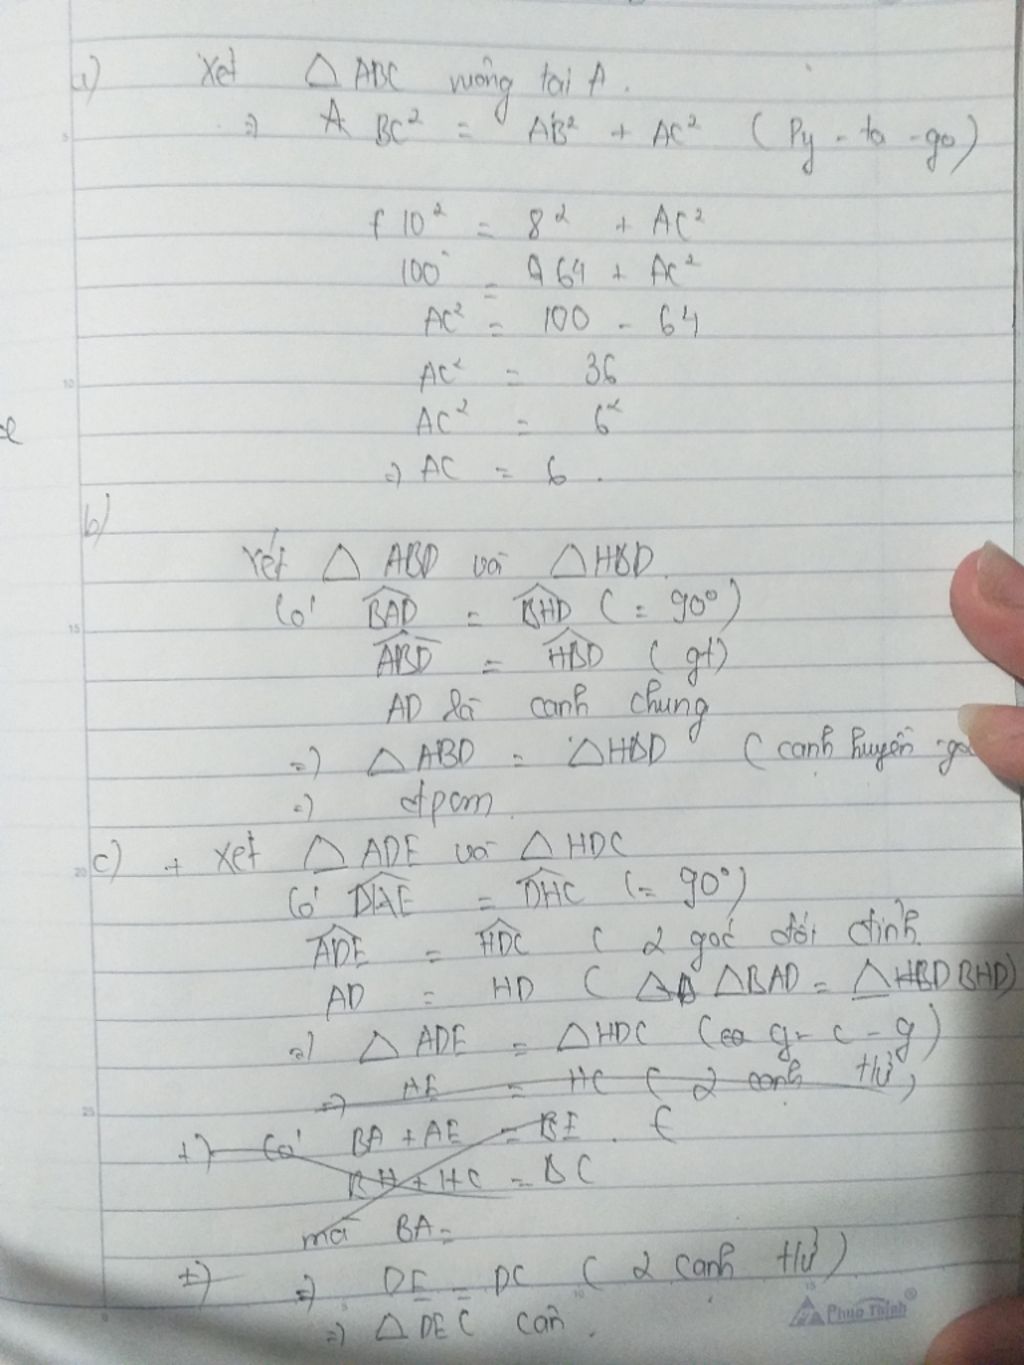 a) Xét △ ABC vuông tại A.
=) A BC² = AB² + AC² ( Py - ta - go)
10² = 8² + AC²
100 = 64 + AC²
AC² = 100 - 64
AC² = 36
AC² = 6²
=) AC = 6 .
b)
Xét △ ABD và △ HBD.
Có BAD = BHD ( = 90°)
ABD = HBD ( gt)
AD là cạnh chung
=) △ ABD = △ HBD ( cạnh huyền
=) đpcm
c) + Xét △ ADE và △ HDC
Có DAE = DHC (= 90°)
ADE = HDC ( 2 góc đối đỉnh.
AD = HD ( △ BAD = △ HBD BHD)
=) △ ADE = △ HDC ( g - c - g)
=) AE = HC ( 2 cạnh tứ)
+) Có BA + AE = BE .
BH + HC = BC
mà BA =
+) =) DE = DC ( 2 cạnh tứ)
=) △ DEC cân .
Phuo Thịnh®